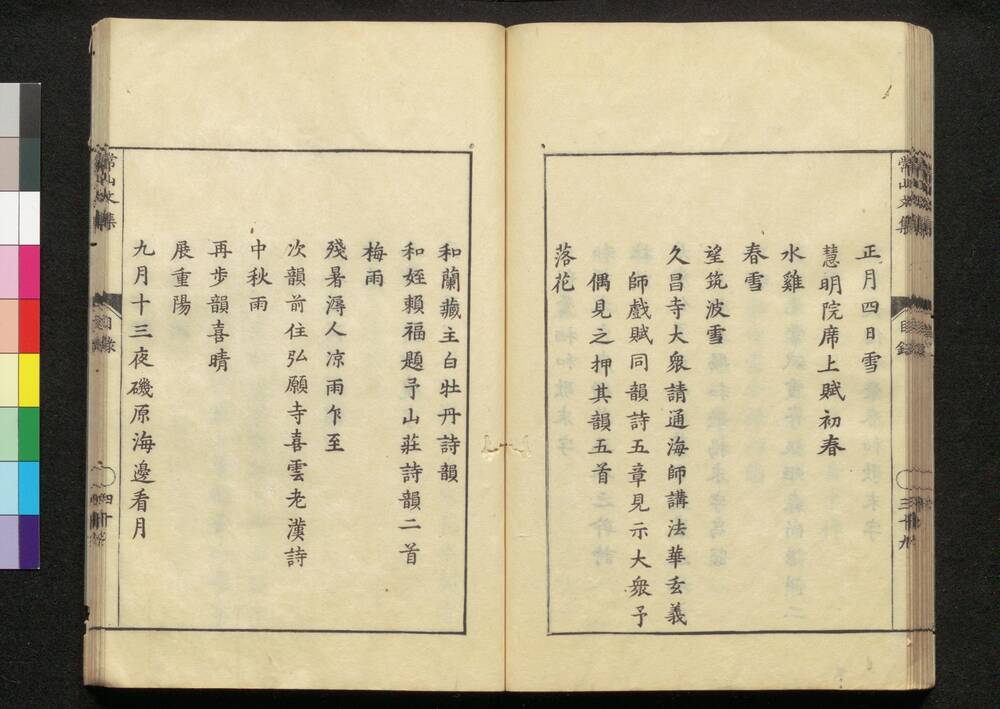 正月四日雪
慧明院席上賦初春
水雞
春雪
望筑波雪
久昌寺大衆請通海師講法華玄義
師戲賦同韻詩五章見示大衆予
偶見之押其韻五首
落花
常山文集
目錄
三十九
和蘭藏主白牡丹詩韻
和姪賴福題予山莊詩韻二首
梅雨
殘暑溽人凉雨乍至
次韻前住弘願寺喜雲老漢詩
中秋雨
再步韻喜晴
展重陽
九月十三夜磯原海邊看月
常山文集
目錄
四十